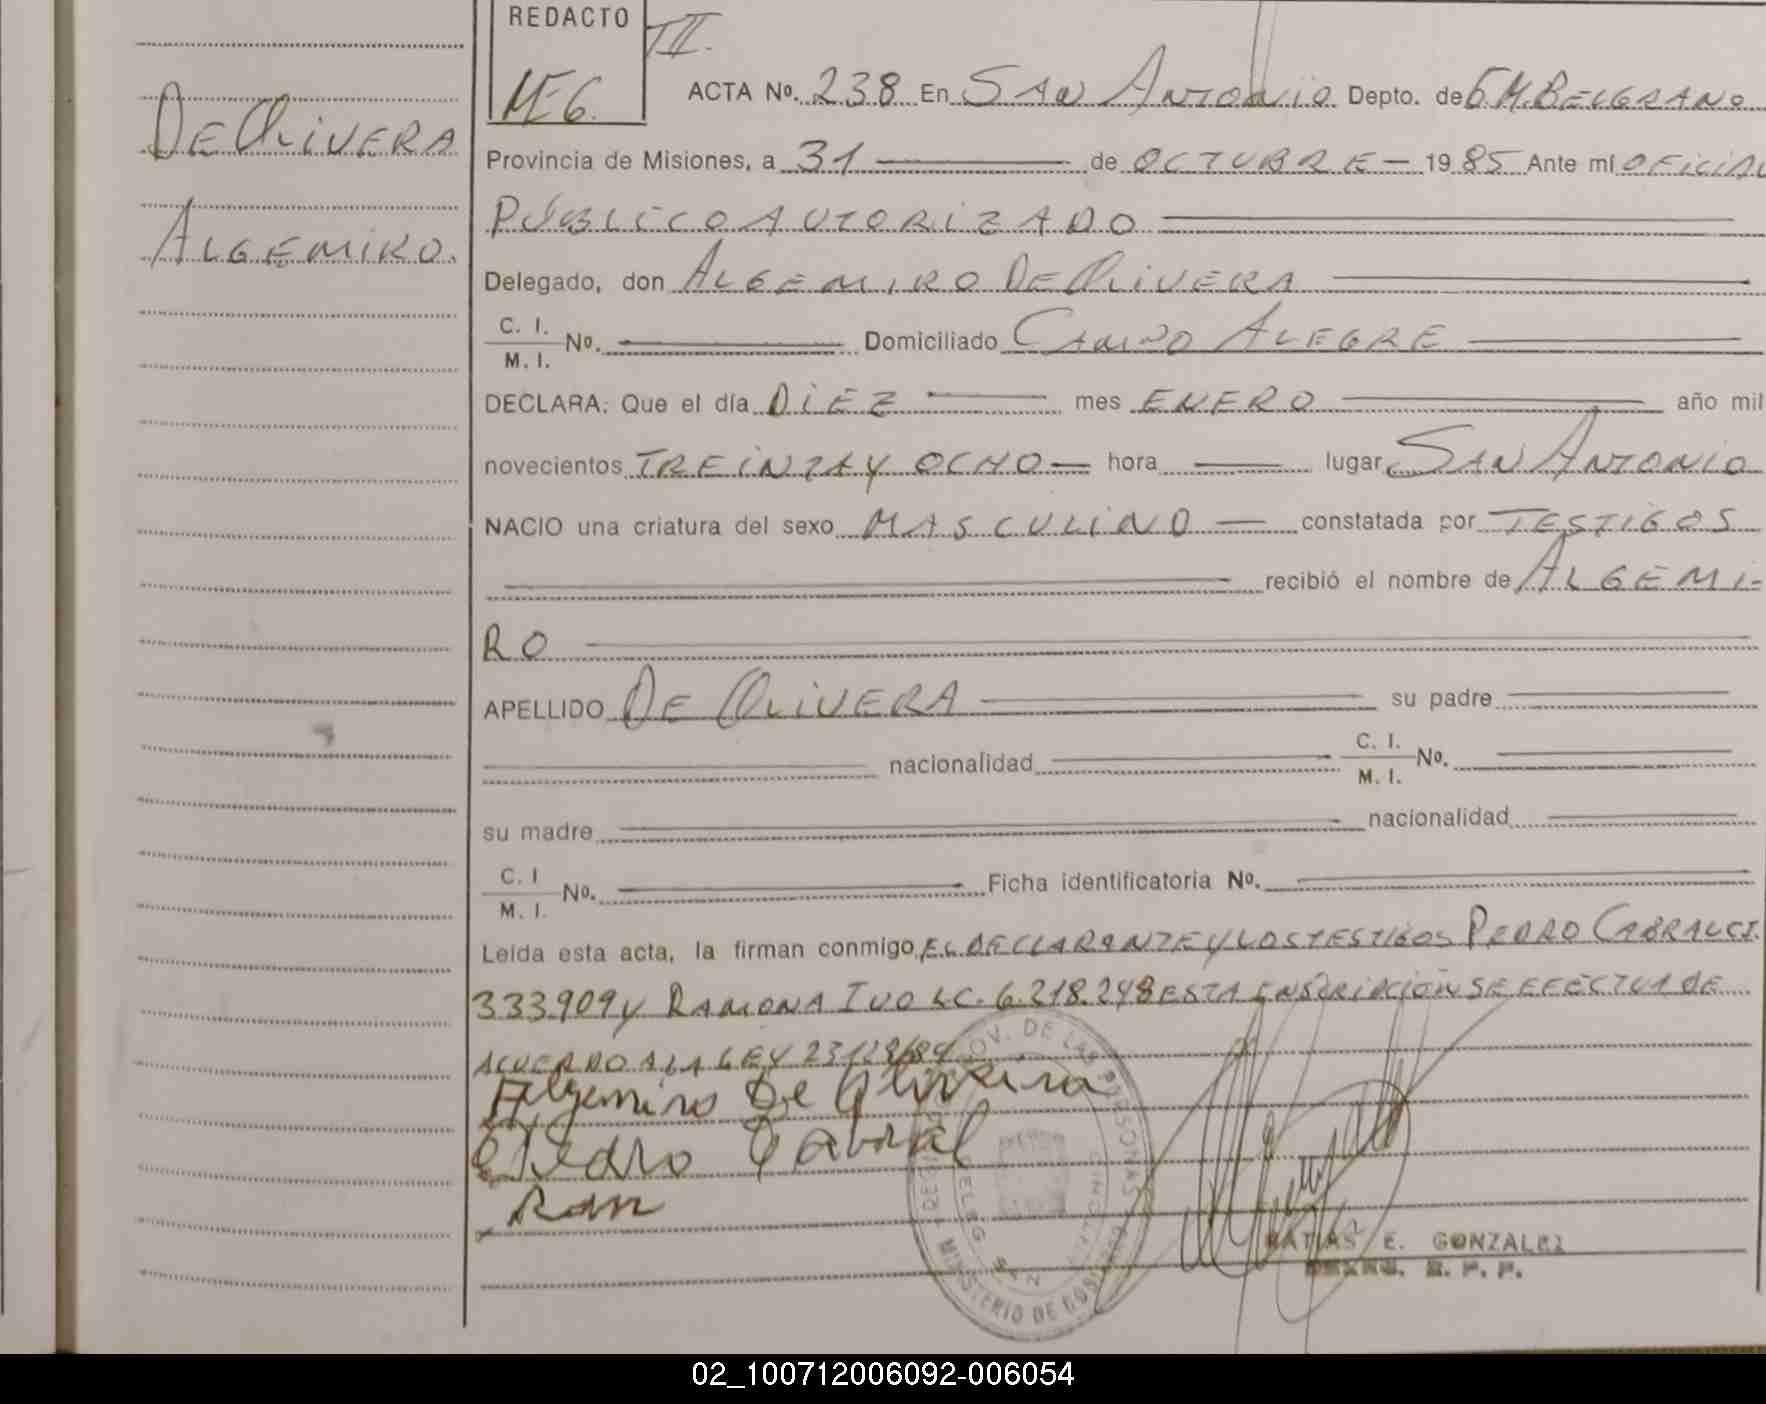 REDACTO
II.
MEG.
ACTA Nº. 238 En SAN ANTONIO Depto. de G.M. BELGRANO
DE OLIVERA
ALGEMIRO.
Provincia de Misiones, a 31 de OCTUBRE 1985 Ante mí OFICIAL
PÚBLICO AUTORIZADO
Delegado, don ALGEMIRO DE OLIVERA
C. I. / M. I. Nº. Domiciliado CAMPO ALEGRE
DECLARA: Que el día DIEZ mes ENERO año mil
novecientos TREINTA Y OCHO hora lugar SAN ANTONIO
NACIO una criatura del sexo MASCULINO constatada por TESTIGOS
recibió el nombre de ALGEMI-
RO
APELLIDO DE OLIVERA su padre
nacionalidad C. I. / M. I. Nº.
su madre nacionalidad
C. I / M. I. Nº. Ficha identificatoria Nº.
Leída esta acta, la firman conmigo EL DECLARANTE Y LOS TESTIGOS PEDRO CABRAL CI.
333909 y RAMONA IVO LC. 6.218.248 ESTA INSCRIPCIÓN SE EFECTUA DE
ACUERDO A LA LEY 23128/84
Algemiro De Oliveira
Pedro Cabral
Ram
PROV. DE LAS PERSONAS
MINISTERIO DE GOBIERNO
MATIAS E. GONZALEZ
02_100712006092-006054